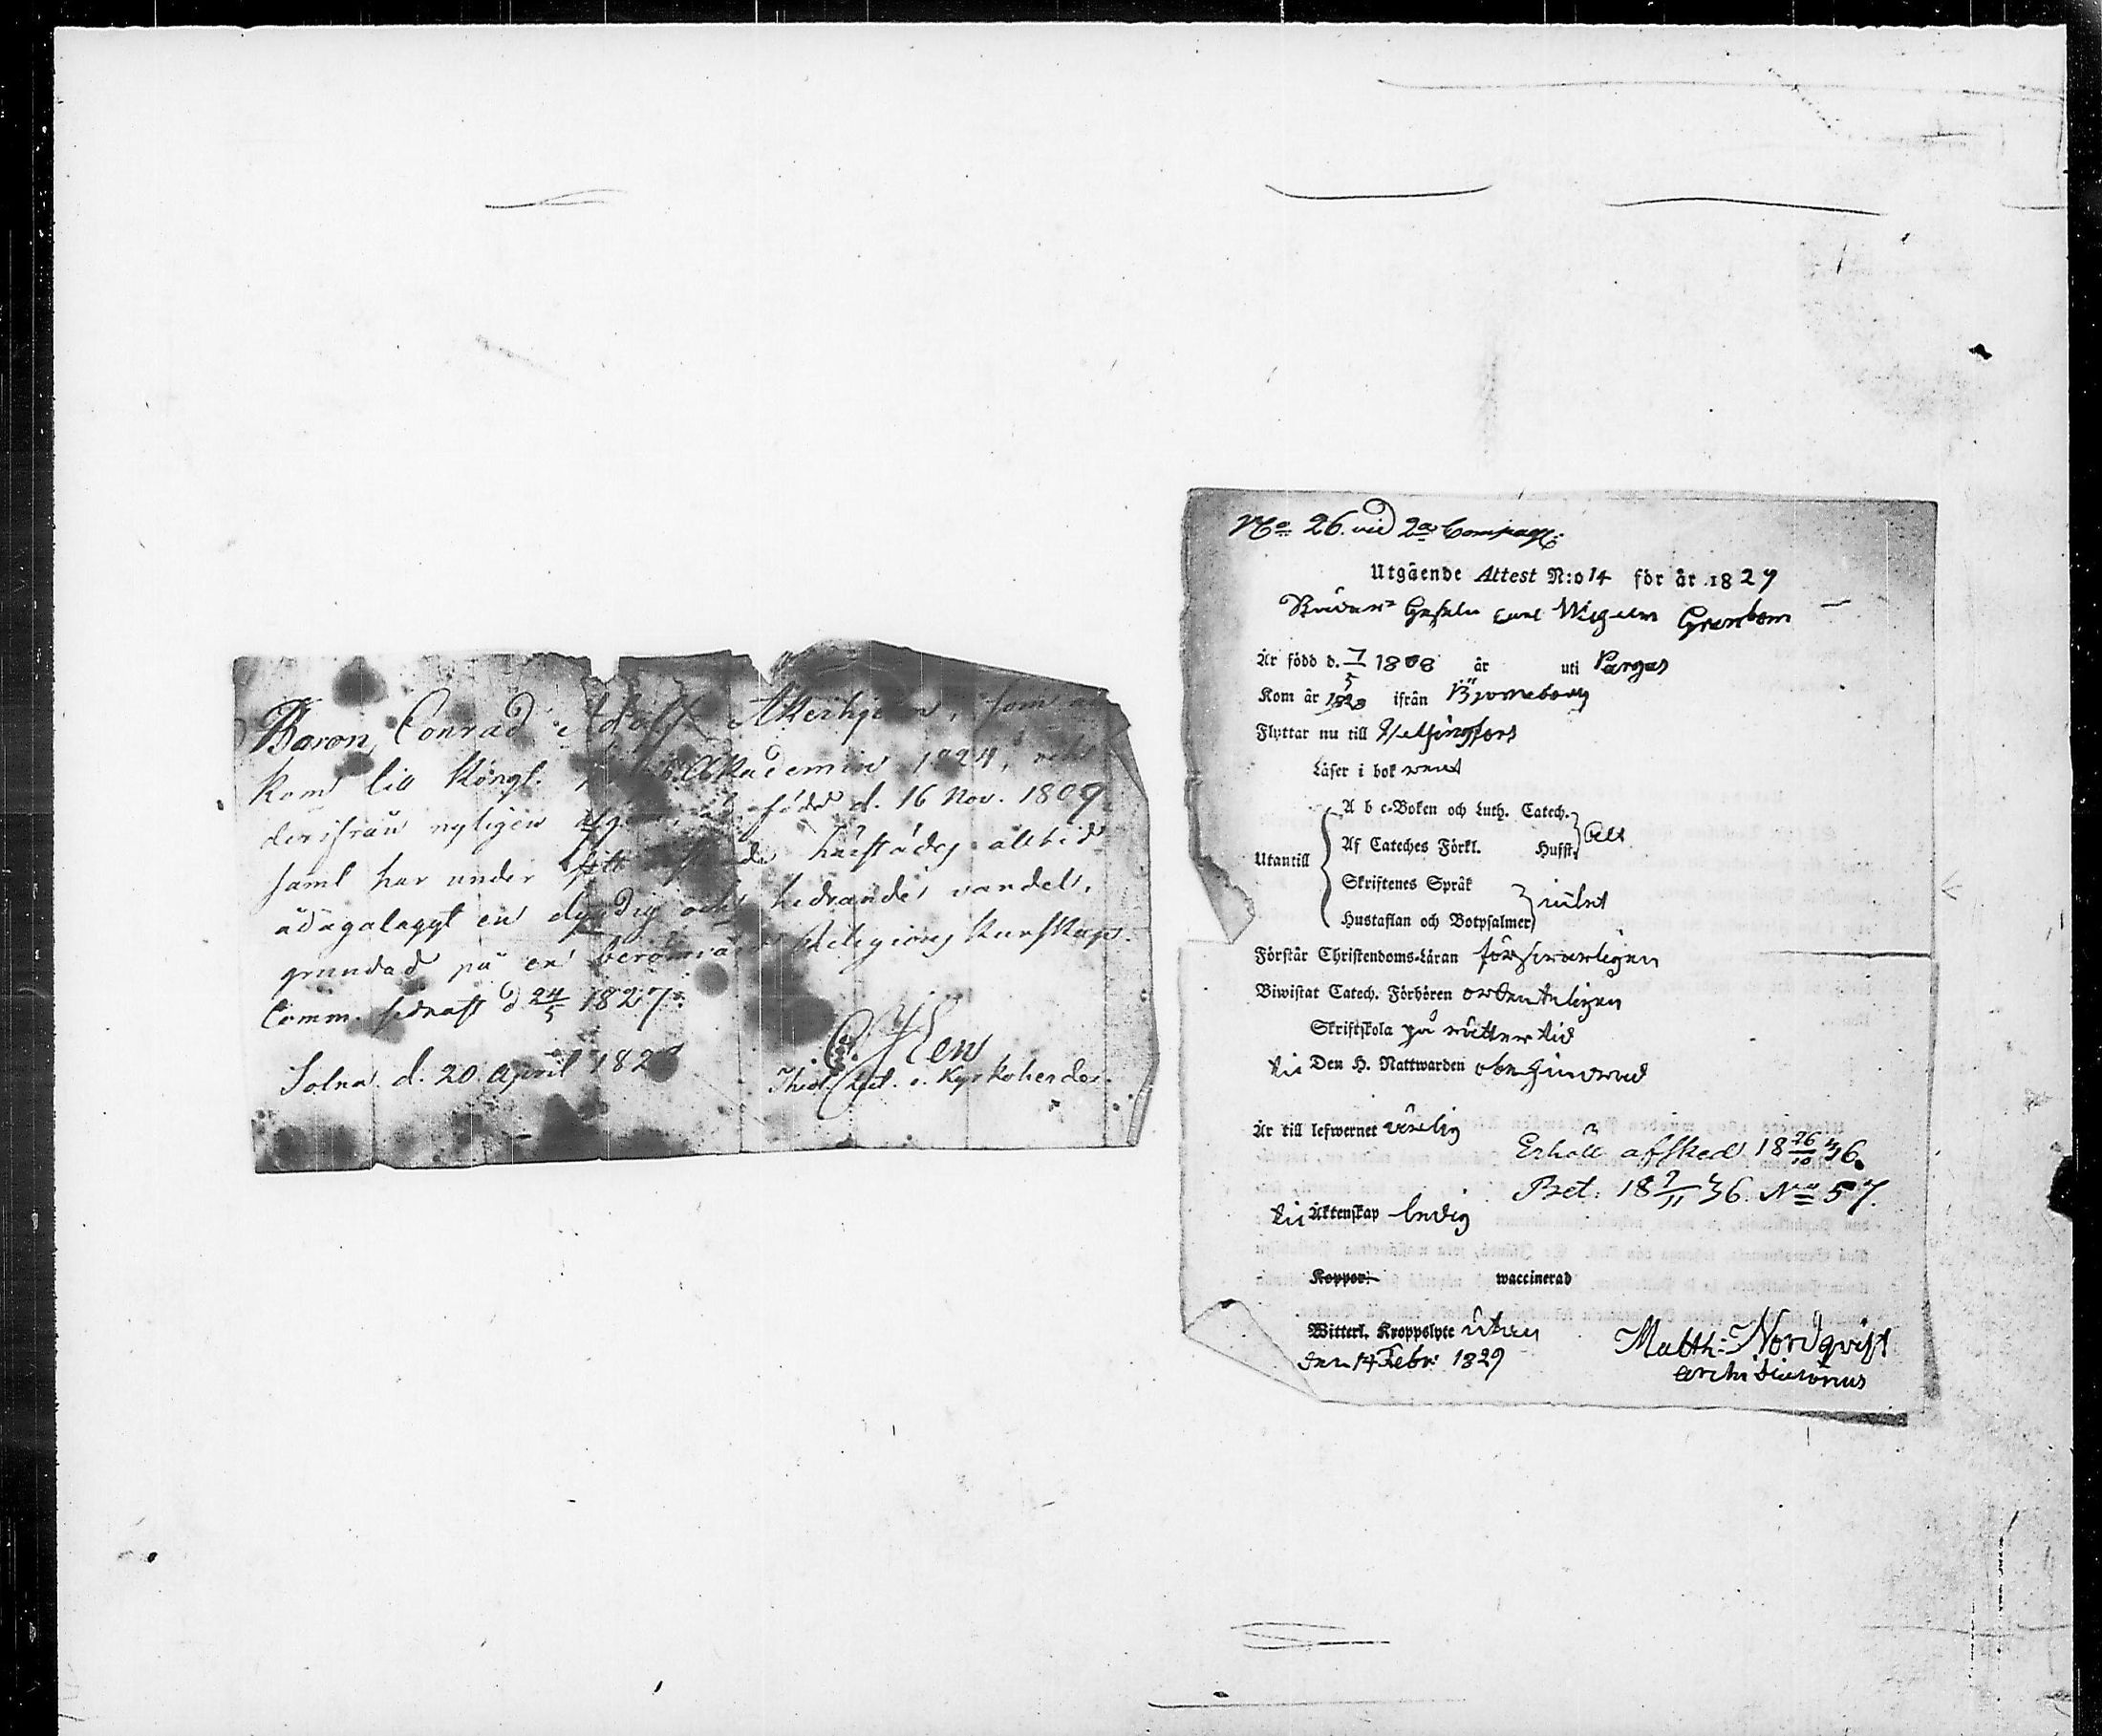 Baron Conrad Adolf Åkerhjelm, som år
kom till Kongl. Akademien 1824, och
derifrån nyligen född d. 16 Nov. 1809
samt har under sitt härstädes alltid
ådagalaggt en dygdig och hedrande vandel,
grundad på en berömvärd Religions Kunskap.
Comm. sednast d. 24/5 1827.
Solna. d. 20. April 182
Theol. Kyrkoherde.
No 26. vid 2a Compagn:
Utgående Attest N:o 14 för år 1829
Gesäln Carl Wilhelm Grönbom
Är född d. 7/5 1808 år uti Pargas
Kom år 1828 ifrån Björneborg
Flyttar nu till Helsingfors
Läser i bok rent
Utantill
A b c-Boken och Luth. Catech.
Af Cateches Förkl. Hufst. Allt
Skriftenes Språk
Hustaflan och Botpsalmer
Förstår Christendoms-Läran försvarligen
Biwistat Catech. Förhören ordenteligen
Skriftskola på rätter tid
till Den H. Nattwarden obehindrad
Är till lefwernet värdig
Erhöll afsked 18 26/10 36.
Bet. 18 9/11 36. No 57.
till Äktenskap ledig
Koppor: vaccinerad
Witterl. Kroppslyte utan
den 14 Febr: 1829
Matth: Nordqvist
Archi diaconus